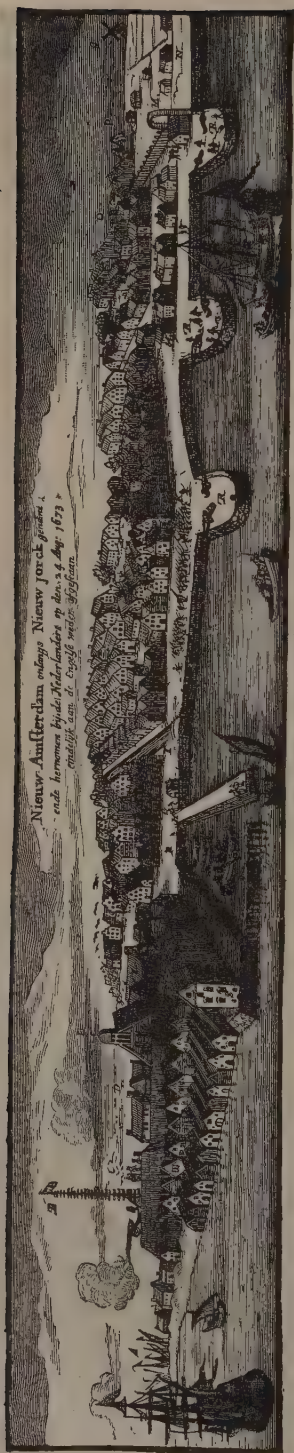 Nieuw-Amsterdam onlangs Nieuw jorck genaemt,
ende hernomen bij de Nederlanders op den 24 Aug: 1673
eindelijk aan de Engelse weder afgestaan